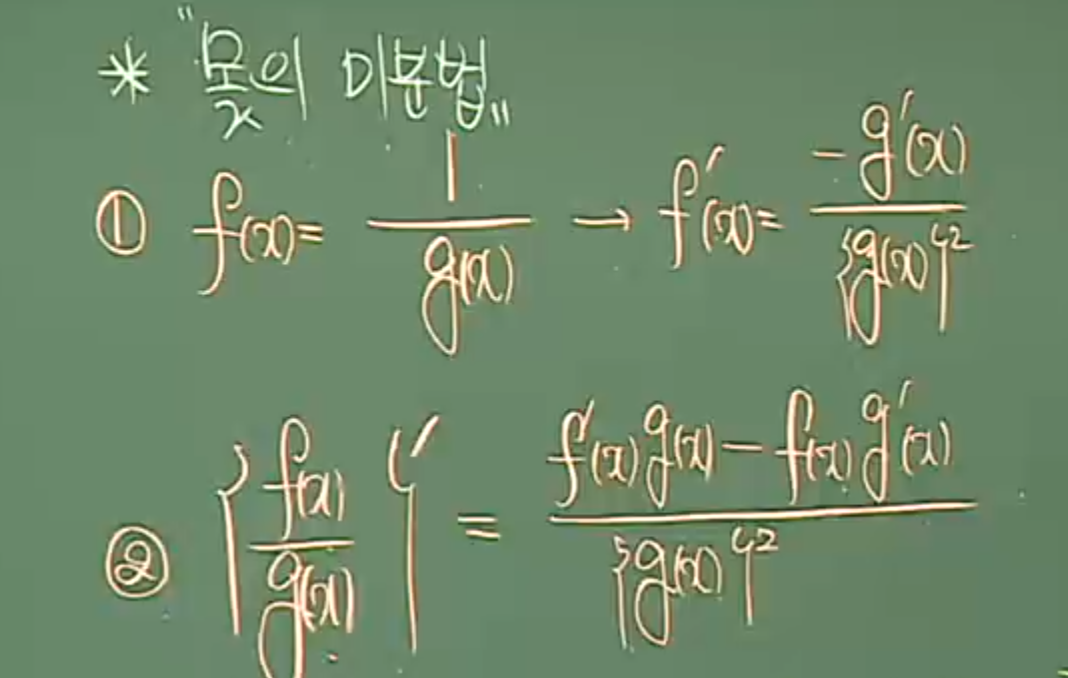 * "몫의 미분법"
① f(x) = 1/g(x) → f'(x) = -g'(x)/{g(x)}²
② {f(x)/g(x)}' = f'(x)g(x) - f(x)g'(x)/{g(x)}²